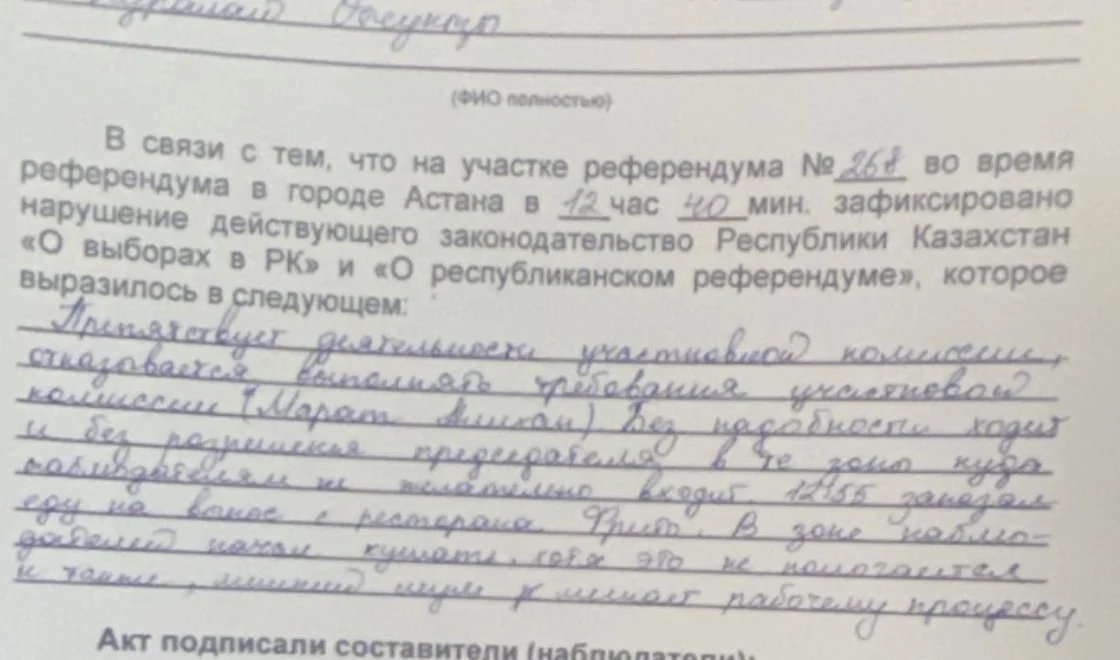 (ФИО полностью)
В связи с тем, что на участке референдума № 268 во время
референдума в городе Астана в 12 час 40 мин. зафиксировано
нарушение действующего законодательство Республики Казахстан
«О выборах в РК» и «О республиканском референдуме», которое
выразилось в следующем:
Препятствует деятельности участковой комиссии,
отказывается выполнять требования участковой
комиссии (Марат) Без надобности ходит
и без разрешения председателя в те зоны куда
наблюдателям не желательно входит. 12:55 заказал
еду на вынос с ресторана. В зоне наблю-
дателей начал кушать, хотя это не полагается
и также, лишний шум мешает рабочему процессу.
Акт подписали составители (наблюдатели):